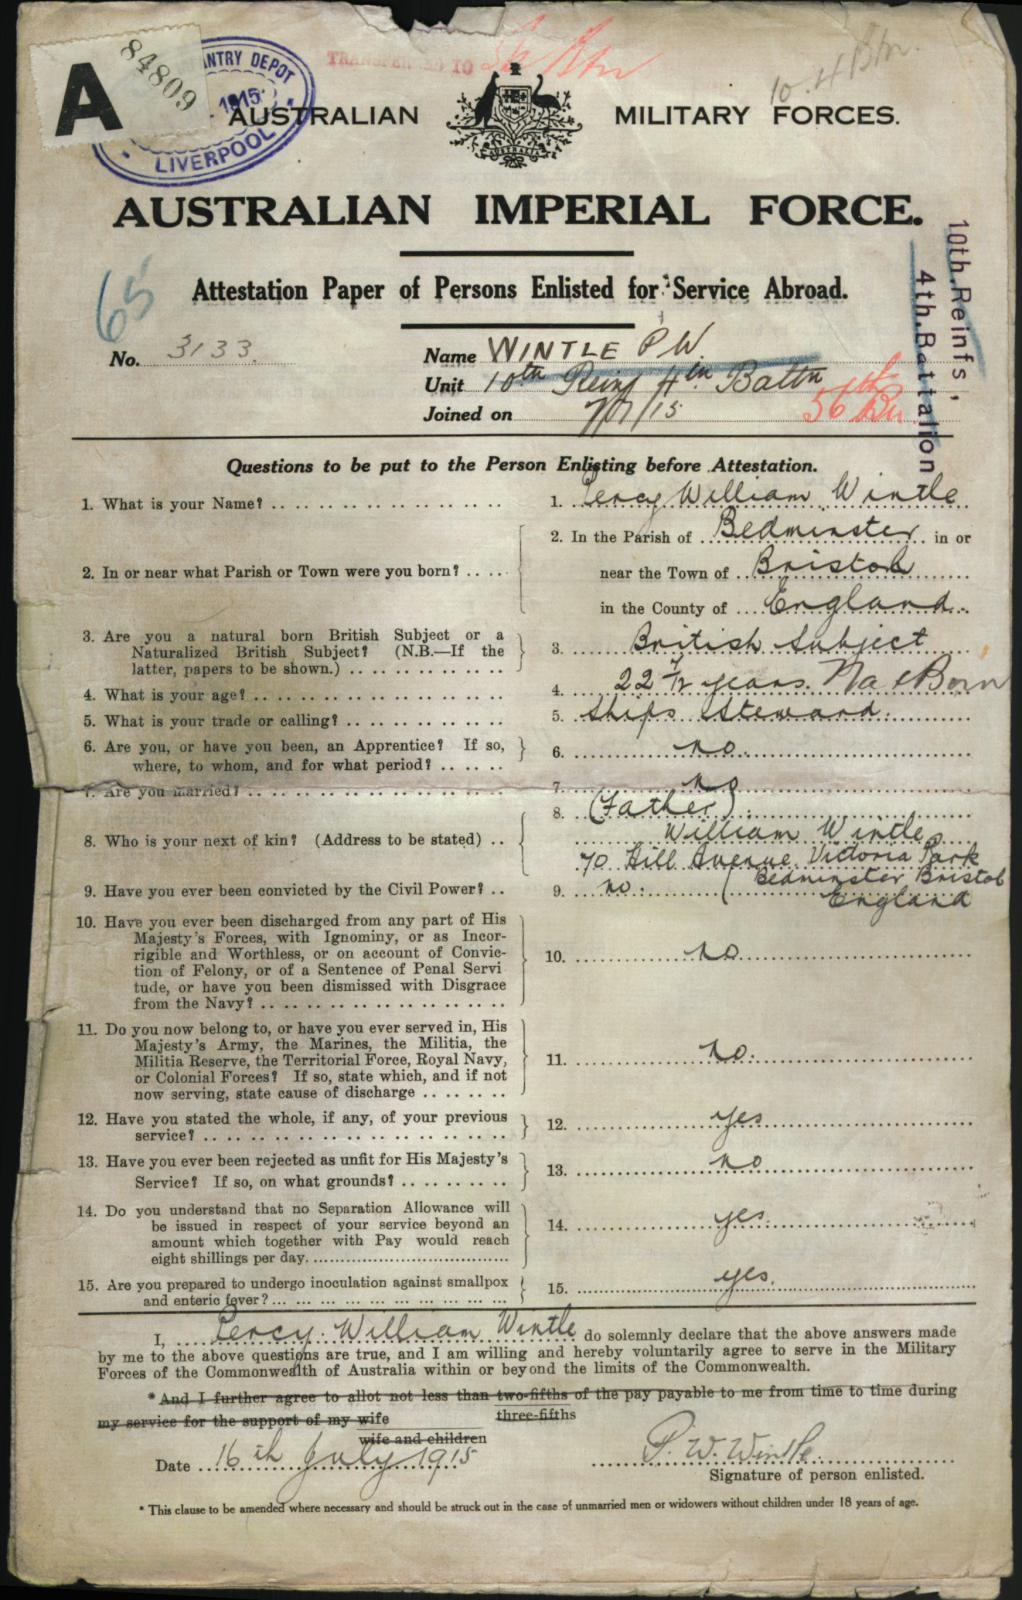 A 84809
INFANTRY DEPOT
1915
LIVERPOOL
TRANSFERRED TO 56 Btn
10.4 Btn
AUSTRALIAN MILITARY FORCES.
AUSTRALIA
AUSTRALIAN IMPERIAL FORCE.
65
Attestation Paper of Persons Enlisted for Service Abroad.
10th Reinfs,
4th Battalion
No. 3133. Name WINTLE P W.
Unit 10th Reinf 4th Battn
Joined on 7/7/15 56th Bn
Questions to be put to the Person Enlisting before Attestation.
1. What is your Name? 1. Percy William Wintle
2. In or near what Parish or Town were you born? 2. In the Parish of Bedminster in or
near the Town of Bristol
in the County of England
3. Are you a natural born British Subject or a
Naturalized British Subject? (N.B.—If the
latter, papers to be shown.) 3. British Subject
Nat Born
4. What is your age? 4. 22 7/12 years.
5. What is your trade or calling? 5. Ships Steward.
6. Are you, or have you been, an Apprentice? If so,
where, to whom, and for what period? 6. no.
7. Are you married? 7. no
8. Who is your next of kin? (Address to be stated) 8. (Father)
William Wintle
70 Hill Avenue Victoria Park
Bedminster Bristol
England
9. Have you ever been convicted by the Civil Power? 9. no.
10. Have you ever been discharged from any part of His
Majesty's Forces, with Ignominy, or as Incor-
rigible and Worthless, or on account of Convic-
tion of Felony, or of a Sentence of Penal Servi
tude, or have you been dismissed with Disgrace
from the Navy? 10. no
11. Do you now belong to, or have you ever served in, His
Majesty's Army, the Marines, the Militia, the
Militia Reserve, the Territorial Force, Royal Navy,
or Colonial Forces? If so, state which, and if not
now serving, state cause of discharge 11. no.
12. Have you stated the whole, if any, of your previous
service? 12. yes
13. Have you ever been rejected as unfit for His Majesty's
Service? If so, on what grounds? 13. no
14. Do you understand that no Separation Allowance will
be issued in respect of your service beyond an
amount which together with Pay would reach
eight shillings per day. 14. yes.
15. Are you prepared to undergo inoculation against smallpox
and enteric fever? 15. yes.
I, Percy William Wintle do solemnly declare that the above answers made
by me to the above questions are true, and I am willing and hereby voluntarily agree to serve in the Military
Forces of the Commonwealth of Australia within or beyond the limits of the Commonwealth.
* And I further agree to allot not less than two-fifths of the pay payable to me from time to time during
three-fifths
my service for the support of my wife
wife and children
Date 16th July 1915 P. W. Wintle.
Signature of person enlisted.
* This clause to be amended where necessary and should be struck out in the case of unmarried men or widowers without children under 18 years of age.